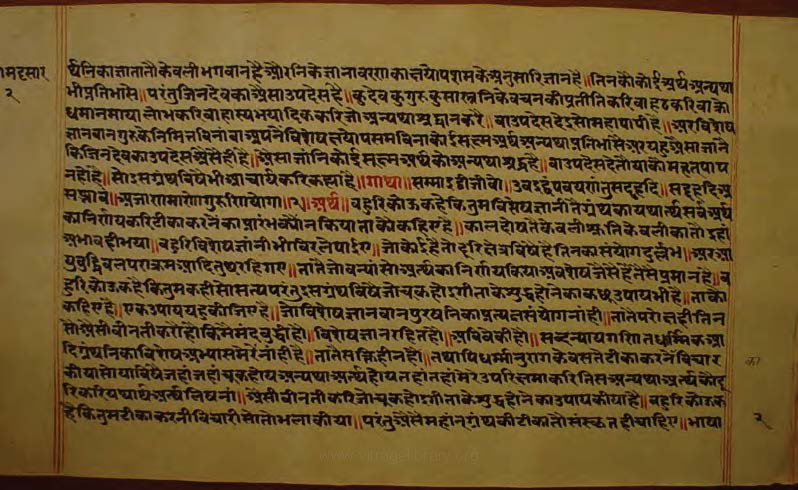 र्थनिका ज्ञाता तौ केवली भगवान है॥ औरनिके ज्ञानावरणका क्षयोपशमके अनुसारि ज्ञान है॥ तिनकौं कोई अर्थ अन्यथा
भी प्रतिभासै॥ परंतु जिनदेवका असा उपदेस है॥ कुदेव कुगुरु कुसास्त्रनिके वचनकी प्रतीति करि वा हठ करि वा क्रो
ध मान माया लोभ करि वा हास्य भयादिक करि जो अन्यथा श्रद्धान करै॥ वा उपदेस देइ सो महापापी है॥ अर विशेष
ज्ञानवान गुरुके निमित्त विनां वा अपनै विशेष क्षयोपसम विना कोई सूक्ष्म अर्थ अन्यथा प्रतिभासै अर यहु असा जांनै
कि जिनदेवका उपदेस असै ही है॥ असा जांनि कोई सूक्ष्म अर्थकौं अन्यथा श्रद्धहै॥ वा उपदेस दे तौ याकौं महत् पाप
न होहै॥ सोइ स ग्रंथविषै भी आचार्य करि कह्या है॥ गाथा॥ सम्माइट्ठी जीवो॥ उवइट्ठं पवयणं तु सद्दहदि॥ सद्दहदि अ
सब्भावं॥ अजाणमाणो गुरुणियोगा॥ १॥ अर्थ॥ बहुरि कोऊ कहै कि तुम विसेष ज्ञानीतै ग्रंथका यथार्थ सर्व अर्थ
का निर्णय करि टीका करनेका प्रारंभ क्यौं न किया॥ ताकौं कहिए है॥ काल दोषतै केवली श्रुतकेवलीका तौ इहां
अभाव ही भया॥ बहुरि विशेष ज्ञांनी भी विरले पाईए॥ जो कोई है तौ दूरि क्षेत्रविषै है तिनका संयोग दुर्ल्लभ॥ अर आ
यु बुद्धि बल पराक्रम आदि तुछ रहि गए॥ तातै जो वन्यां सो अर्थका निर्णय किया॥ अवशेष जैसे है तैसे प्रमान है॥ ब
हुरि कोऊ कहै कि तुम कही सो सत्य परंतु इस ग्रंथविषै जो चूक होइगी ताके शुद्ध होनेका कछू उपाय भी है॥ ताकौं
कहिए है॥ एक उपाय यहु कीजिए है॥ जो विशेष ज्ञानवान पुरुषनिका प्रत्यक्ष संयोग नांही॥ तातै परोक्ष ही तिन
सौं असी वीनती करौं हौं कि मैं मंदबुद्धी हौं॥ विशेष ज्ञान रहित हौं॥ अविवेकी हौं॥ सब्द न्याय गणित धार्म्मिक आ
दि ग्रंथनिका विशेष अभ्यास मेरै नांही है॥ तातै सक्तिहीन हौं॥ तथापि धर्म्मानुरागके वसतै टीका करनें विचार
कीया॥ सो या विषै जहां जहां चूक होय अन्यथा अर्थ होय तहां तहां मेरे उपरि क्षमा करि तिस अन्यथा अर्थकौं दू
रि करि यथार्थ अर्थ लिषनां॥ असी वीनती करि जो चूक होइगी ताके शुद्ध होनेका उपाय कीया है॥ बहुरि कोऊ क
है कि तुम टीका करनी विचारी सो तौ भला कीया॥ परंतु असै महांन ग्रंथकी टीका तौ संस्कृत ही चाहिए॥ भाषा
मदृसार
२
का
२
www.vitragelibrary.org